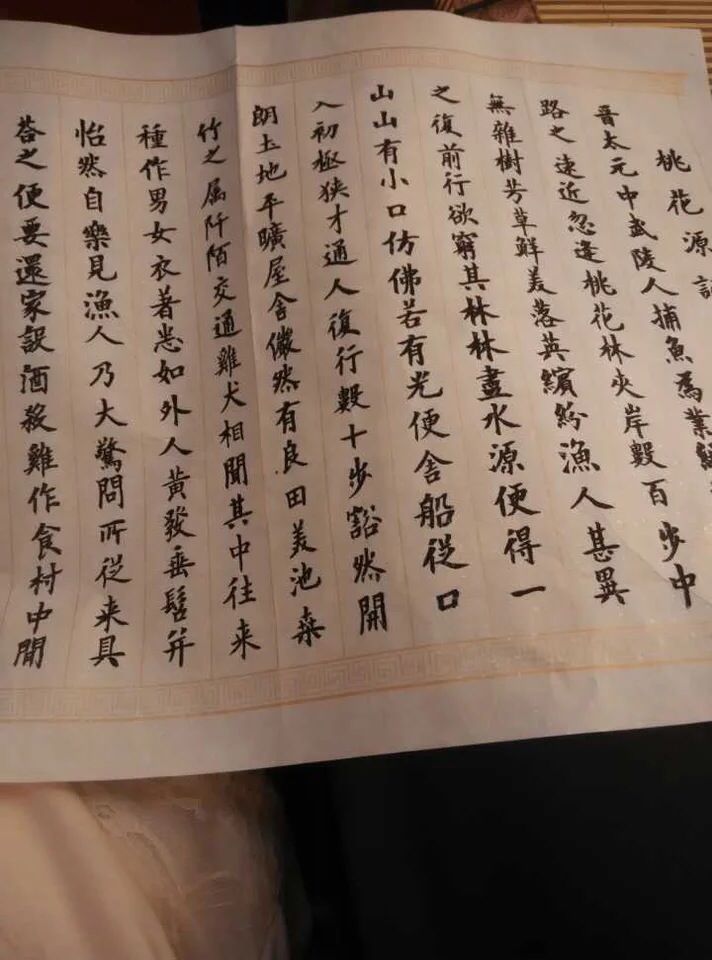 桃花源記
晋太元中武陵人捕魚為業緣
路之遠近忽逢桃花林夾岸數百步中
無雜樹芳草鮮美落英繽紛漁人甚異
之復前行欲窮其林林盡水源便得一
山山有小口仿佛若有光便舍船從口
入初極狹才通人復行數十步豁然開
朗土地平曠屋舍儼然有良田美池桑
竹之属阡陌交通雞犬相聞其中往来
種作男女衣著悉如外人黃發垂髫并
怡然自樂見漁人乃大驚問所從来具
荅之便要還家設酒殺雞作食村中聞